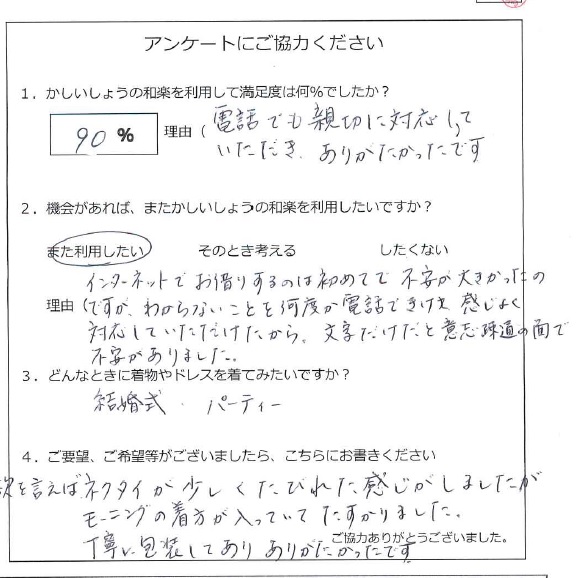 アンケートにご協力ください
1．かしいしょうの和楽を利用して満足度は何%でしたか？
90 %
理由（電話でも親切に対応して
いただき、ありがたかったです
2．機会があれば、またかしいしょうの和楽を利用したいですか？
また利用したい　そのとき考える　したくない
インターネットでお借りするのは初めてで不安が大きかったの
理由（ですが、わからないことを何度か電話できけて、感じよく
対応していただけたから、文字だけだと意志疎通の面で
不安がありました。
3．どんなときに着物やドレスを着てみたいですか？
結婚式．パーティー
4．ご要望、ご希望等がございましたら、こちらにお書きください
欲を言えばネクタイが少しくたびれた感じがしましたが
モーニングの着方が入っていてたすかりました。
丁寧に包装してありありがたかったです
ご協力ありがとうございました。